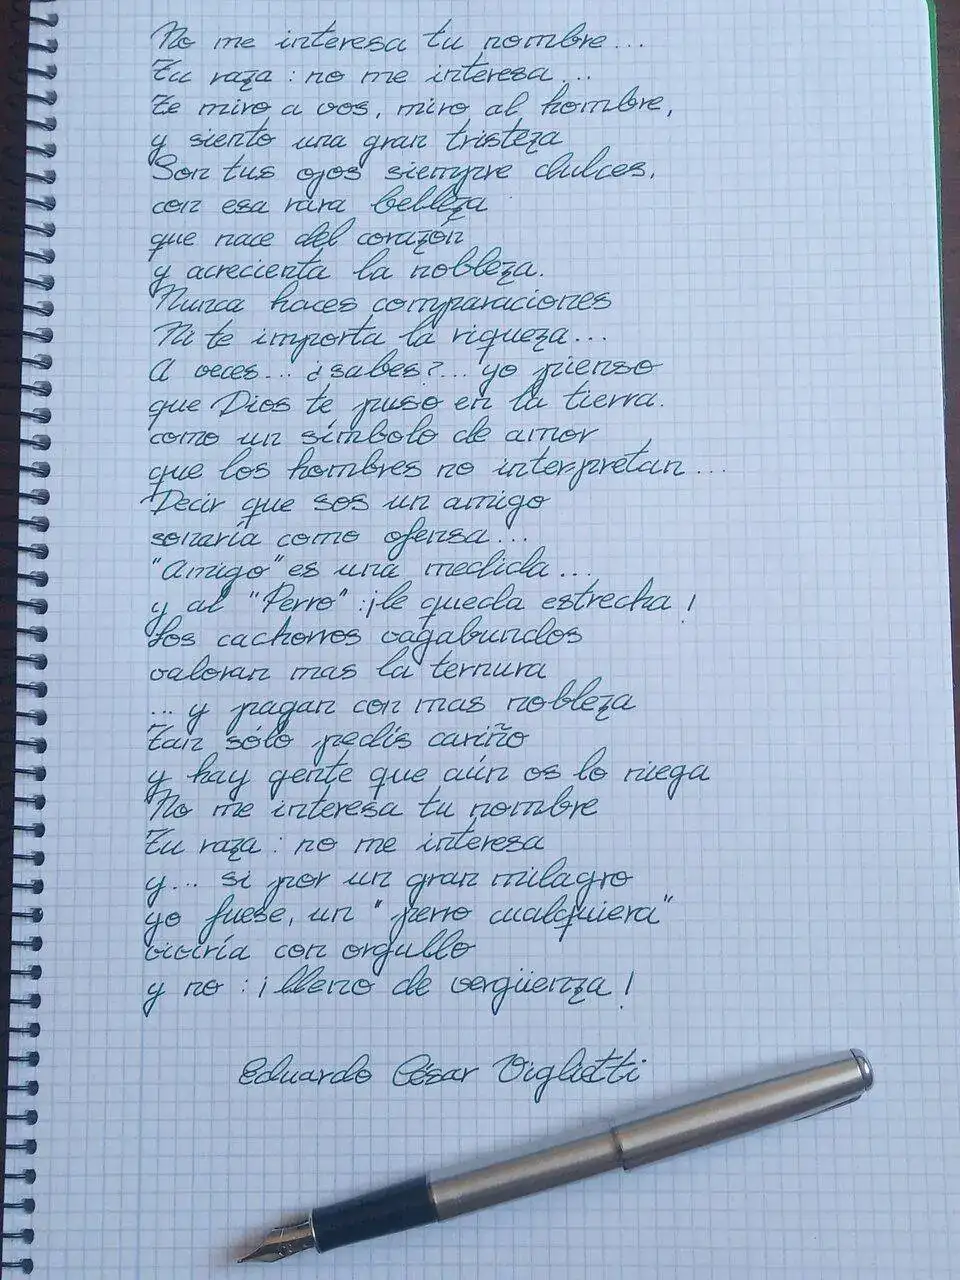 No me interesa tu nombre...
Tu raza: no me interesa...
Te miro a vos, miro al hombre,
y siento una gran tristeza
Son tus ojos siempre dulces,
con esa rara belleza
que nace del corazón
y acrecienta la nobleza.
Nunca haces comparaciones
Ni te importa la riqueza...
A veces... ¿sabes?... yo pienso
que Dios te puso en la tierra.
como un símbolo de amor
que los hombres no interpretan...
Decir que sos un amigo
sonaría como ofensa...
"Amigo" es una medida...
y al "Perro": ¡le queda estrecha!
Los cachorros vagabundos
valoran mas la ternura
... y pagan con mas nobleza
Tan sólo pedís cariño
y hay gente que aún os lo niega
No me interesa tu nombre
Tu raza: no me interesa
y... si por un gran milagro
yo fuese, un "perro cualquiera"
viviría con orgullo
y no: ¡lleno de vergüenza!
Eduardo César Viglietti